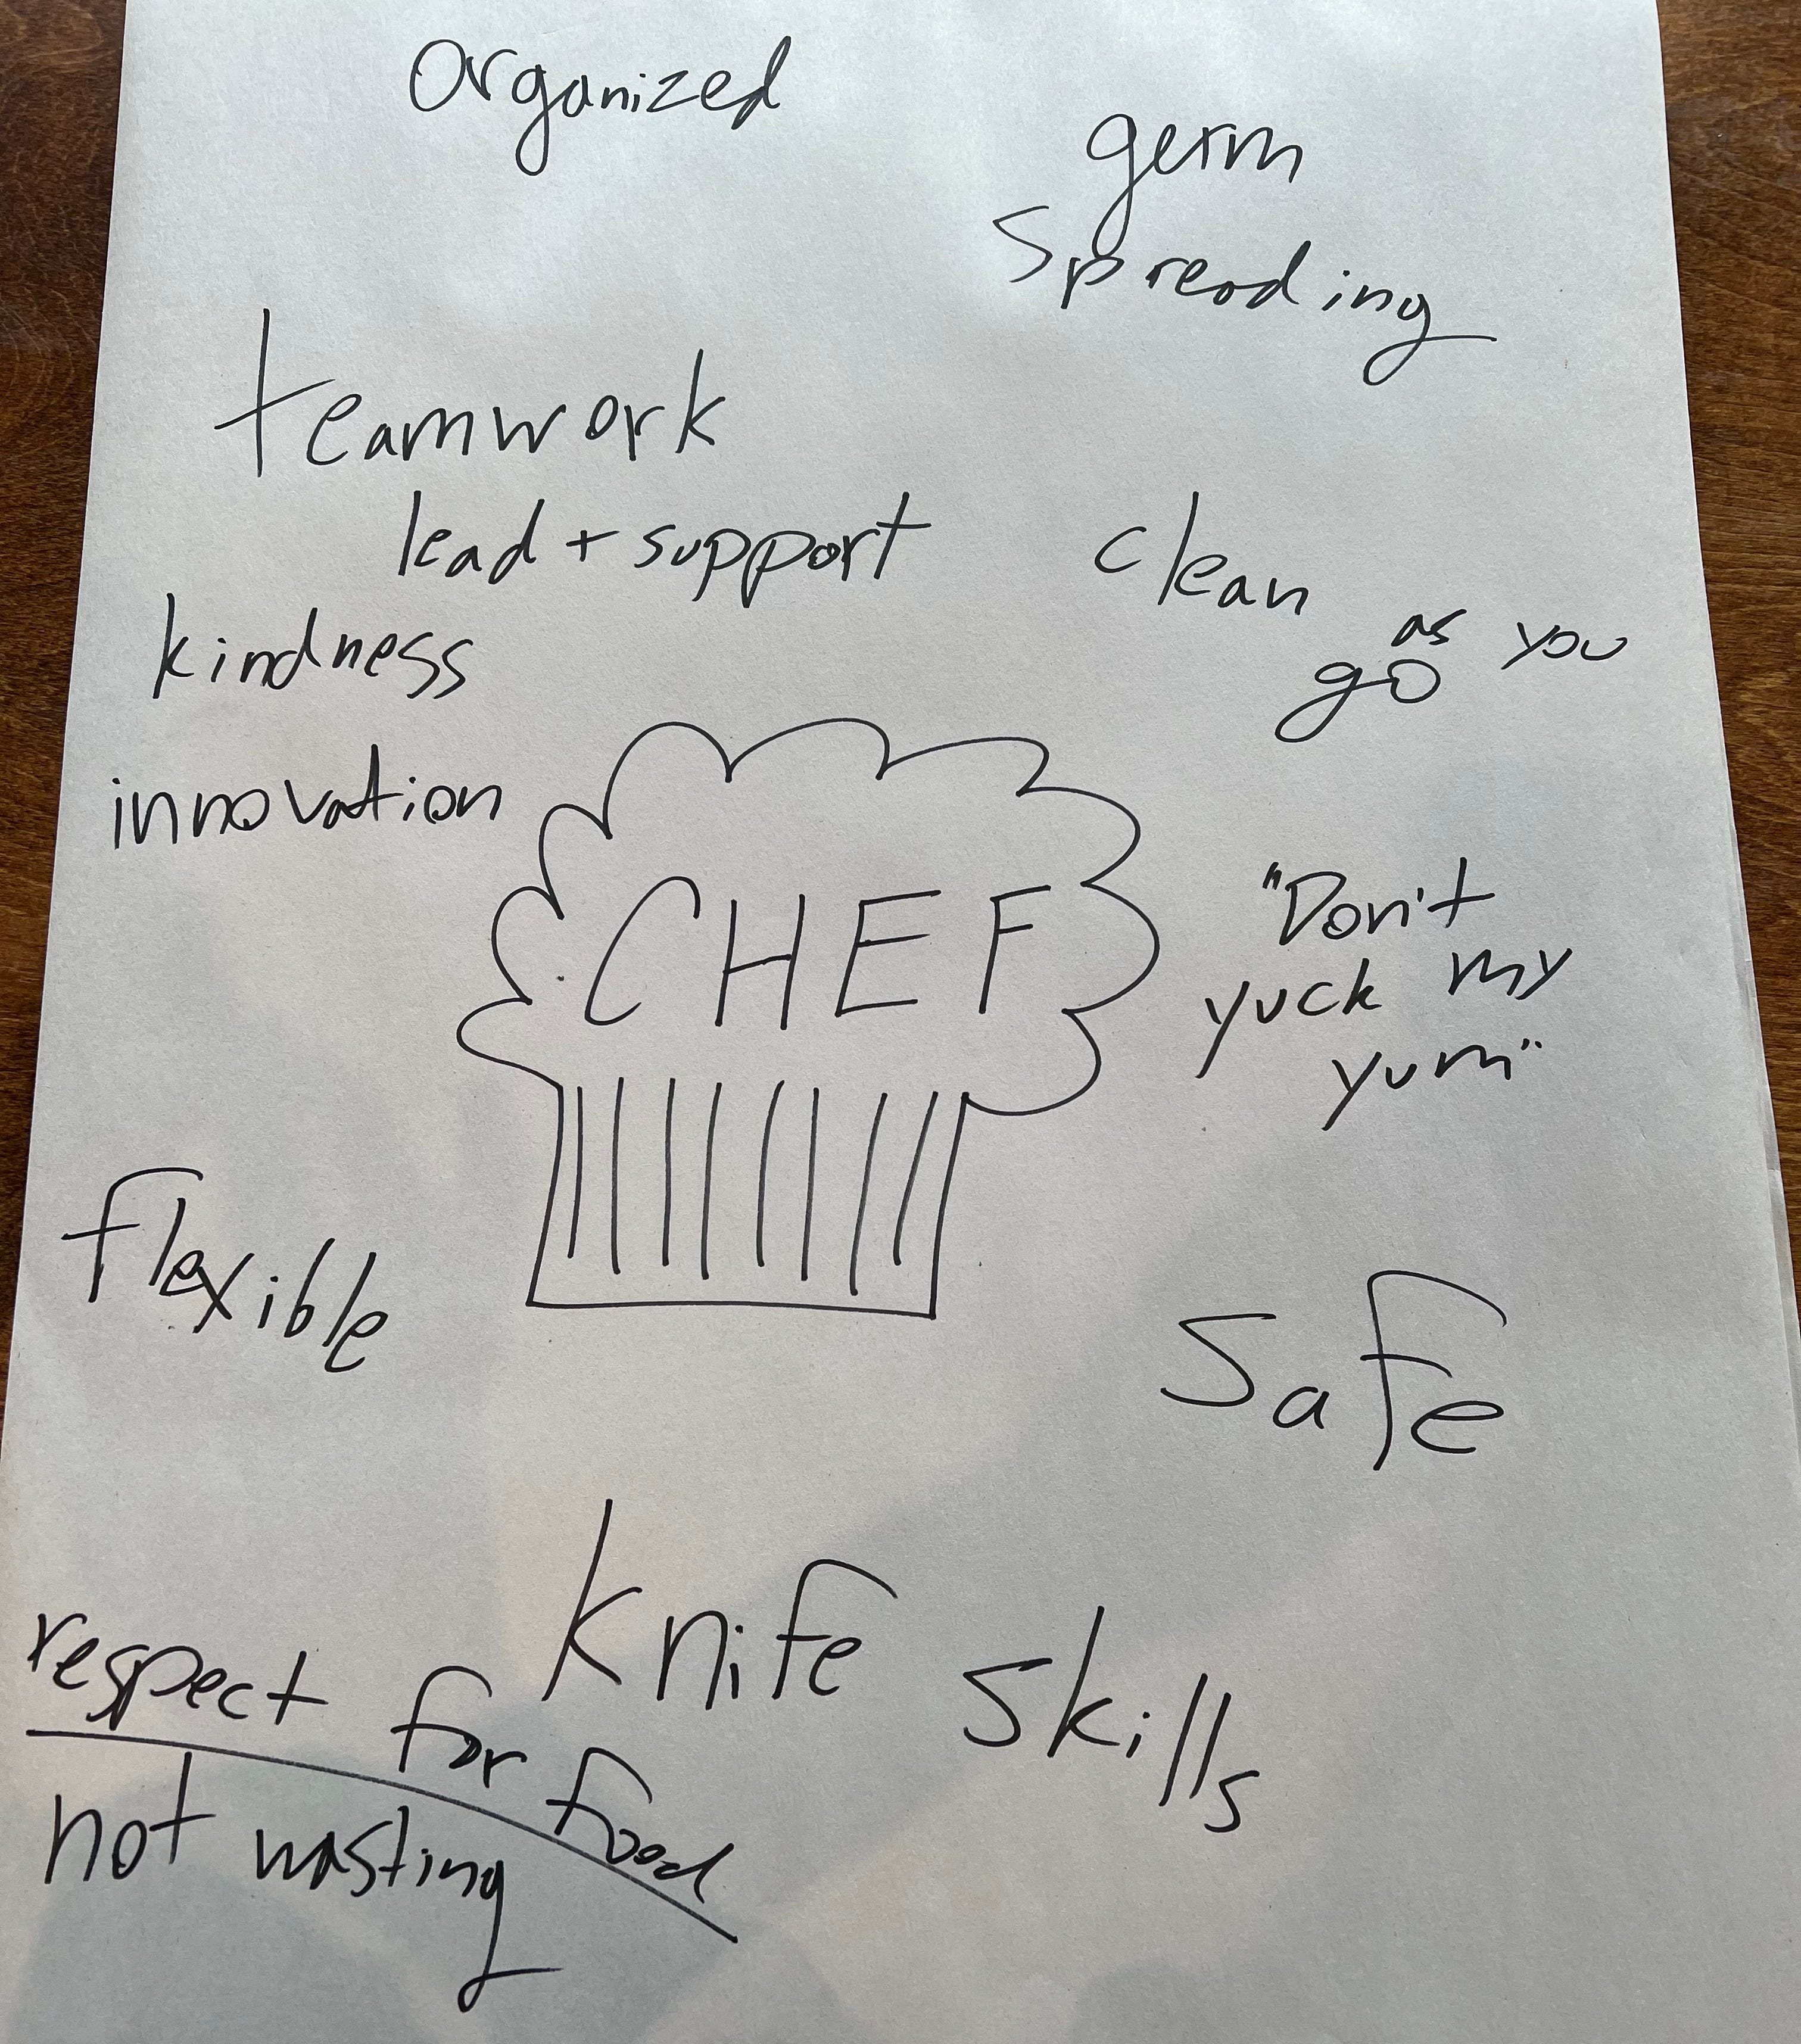 Organized
germ
spreading
teamwork
lead + support
clean
as you
go
kindness
innovation
CHEF
"Don't
yuck my
yum"
flexible
safe
knife
skills
respect for food
not wasting